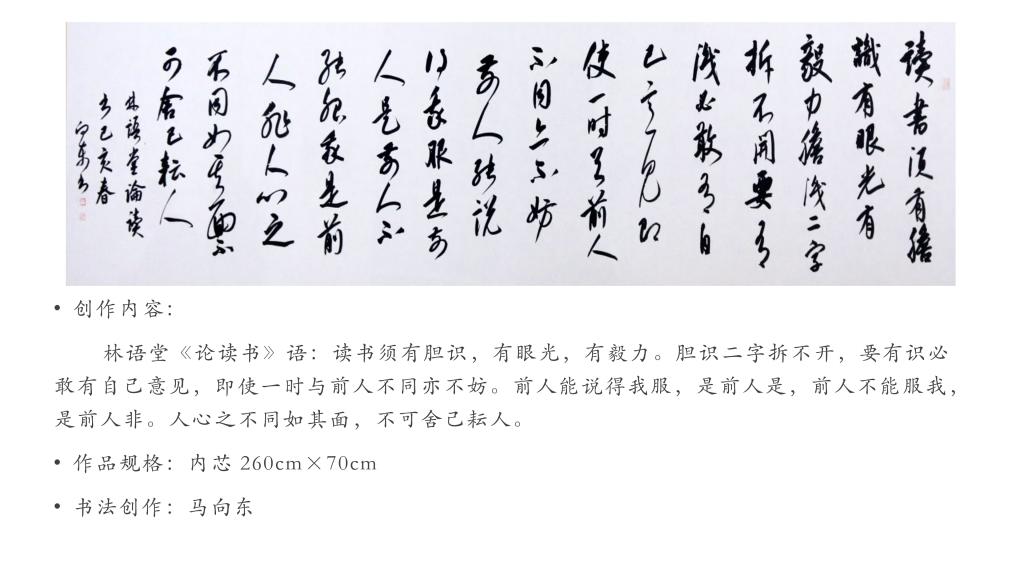 讀書須有膽
識有眼光有
毅力膽識二字
拆不開要有
識必敢有自
己意見即
使一時与前人
不同亦不妨
前人能説
得我服是前
人是前人不
能服我是前
人非人心之
不同如其面不
可舍己耘人
林語堂論讀
书己亥春
向東书
• 创作内容：
林语堂《论读书》语：读书须有胆识，有眼光，有毅力。胆识二字拆不开，要有识必
敢有自己意见，即使一时与前人不同亦不妨。前人能说得我服，是前人是，前人不能服我，
是前人非。人心之不同如其面，不可舍己耘人。
• 作品规格：内芯 260cm×70cm
• 书法创作：马向东